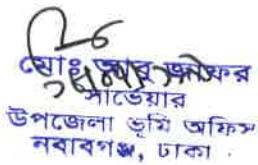 মোঃ আবু জাফর
সার্ভেয়ার
উপজেলা ভূমি অফিস
নবাবগঞ্জ, ঢাকা।